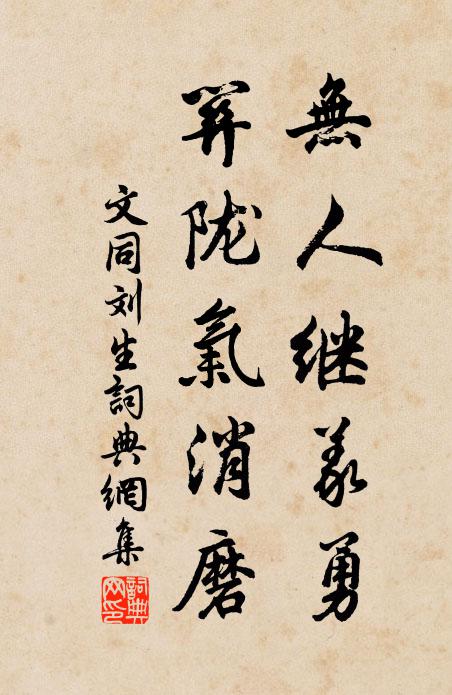 無人继義勇
陇氣消磨
文同刘生詞典網集
詞典网印